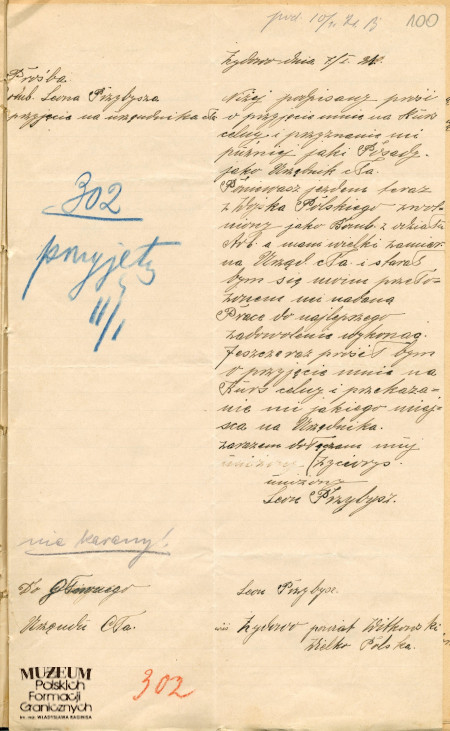 100
Żydowo dnia 7/I. 21.
Prośba
Bomb. Leona Przybysza
o przyjęcie na urzędnika Cła
Niżej podpisany prosi
o przyjęcie mnie na Kurs
celny i przyznanie mi
później jaki Posady
jako Urzędnik Cła.
Poniewasz jezdem teraz
z Wojska Polskiego zwol-
niony jako Bomb. z oddziału
a mam wielki zamiar
na Urząd Cła i starał
bym się moim przeło-
żonem mi nadaną
Pracę do najlepszego
zadowolenia wykonać.
Jeszcze raz prosił bym
o przyjęcie mnie na
Kurs celny i przekaza-
nie mi jakiego miej-
sca na Urzędnika.
Zarazem dołączam mój
Życiorys.
uniżony
Leon Przybysz.
302
przyjęty
11/I
nie karany!
Do Głównego
Urzędu Cła.
Leon Przybysz.
Żydowo powiat Witkowski
Wielko Polska.
302
MUZEUM
Polskich
Formacji
Granicznych
im. mjr. WŁADYSŁAWA RAGINISA